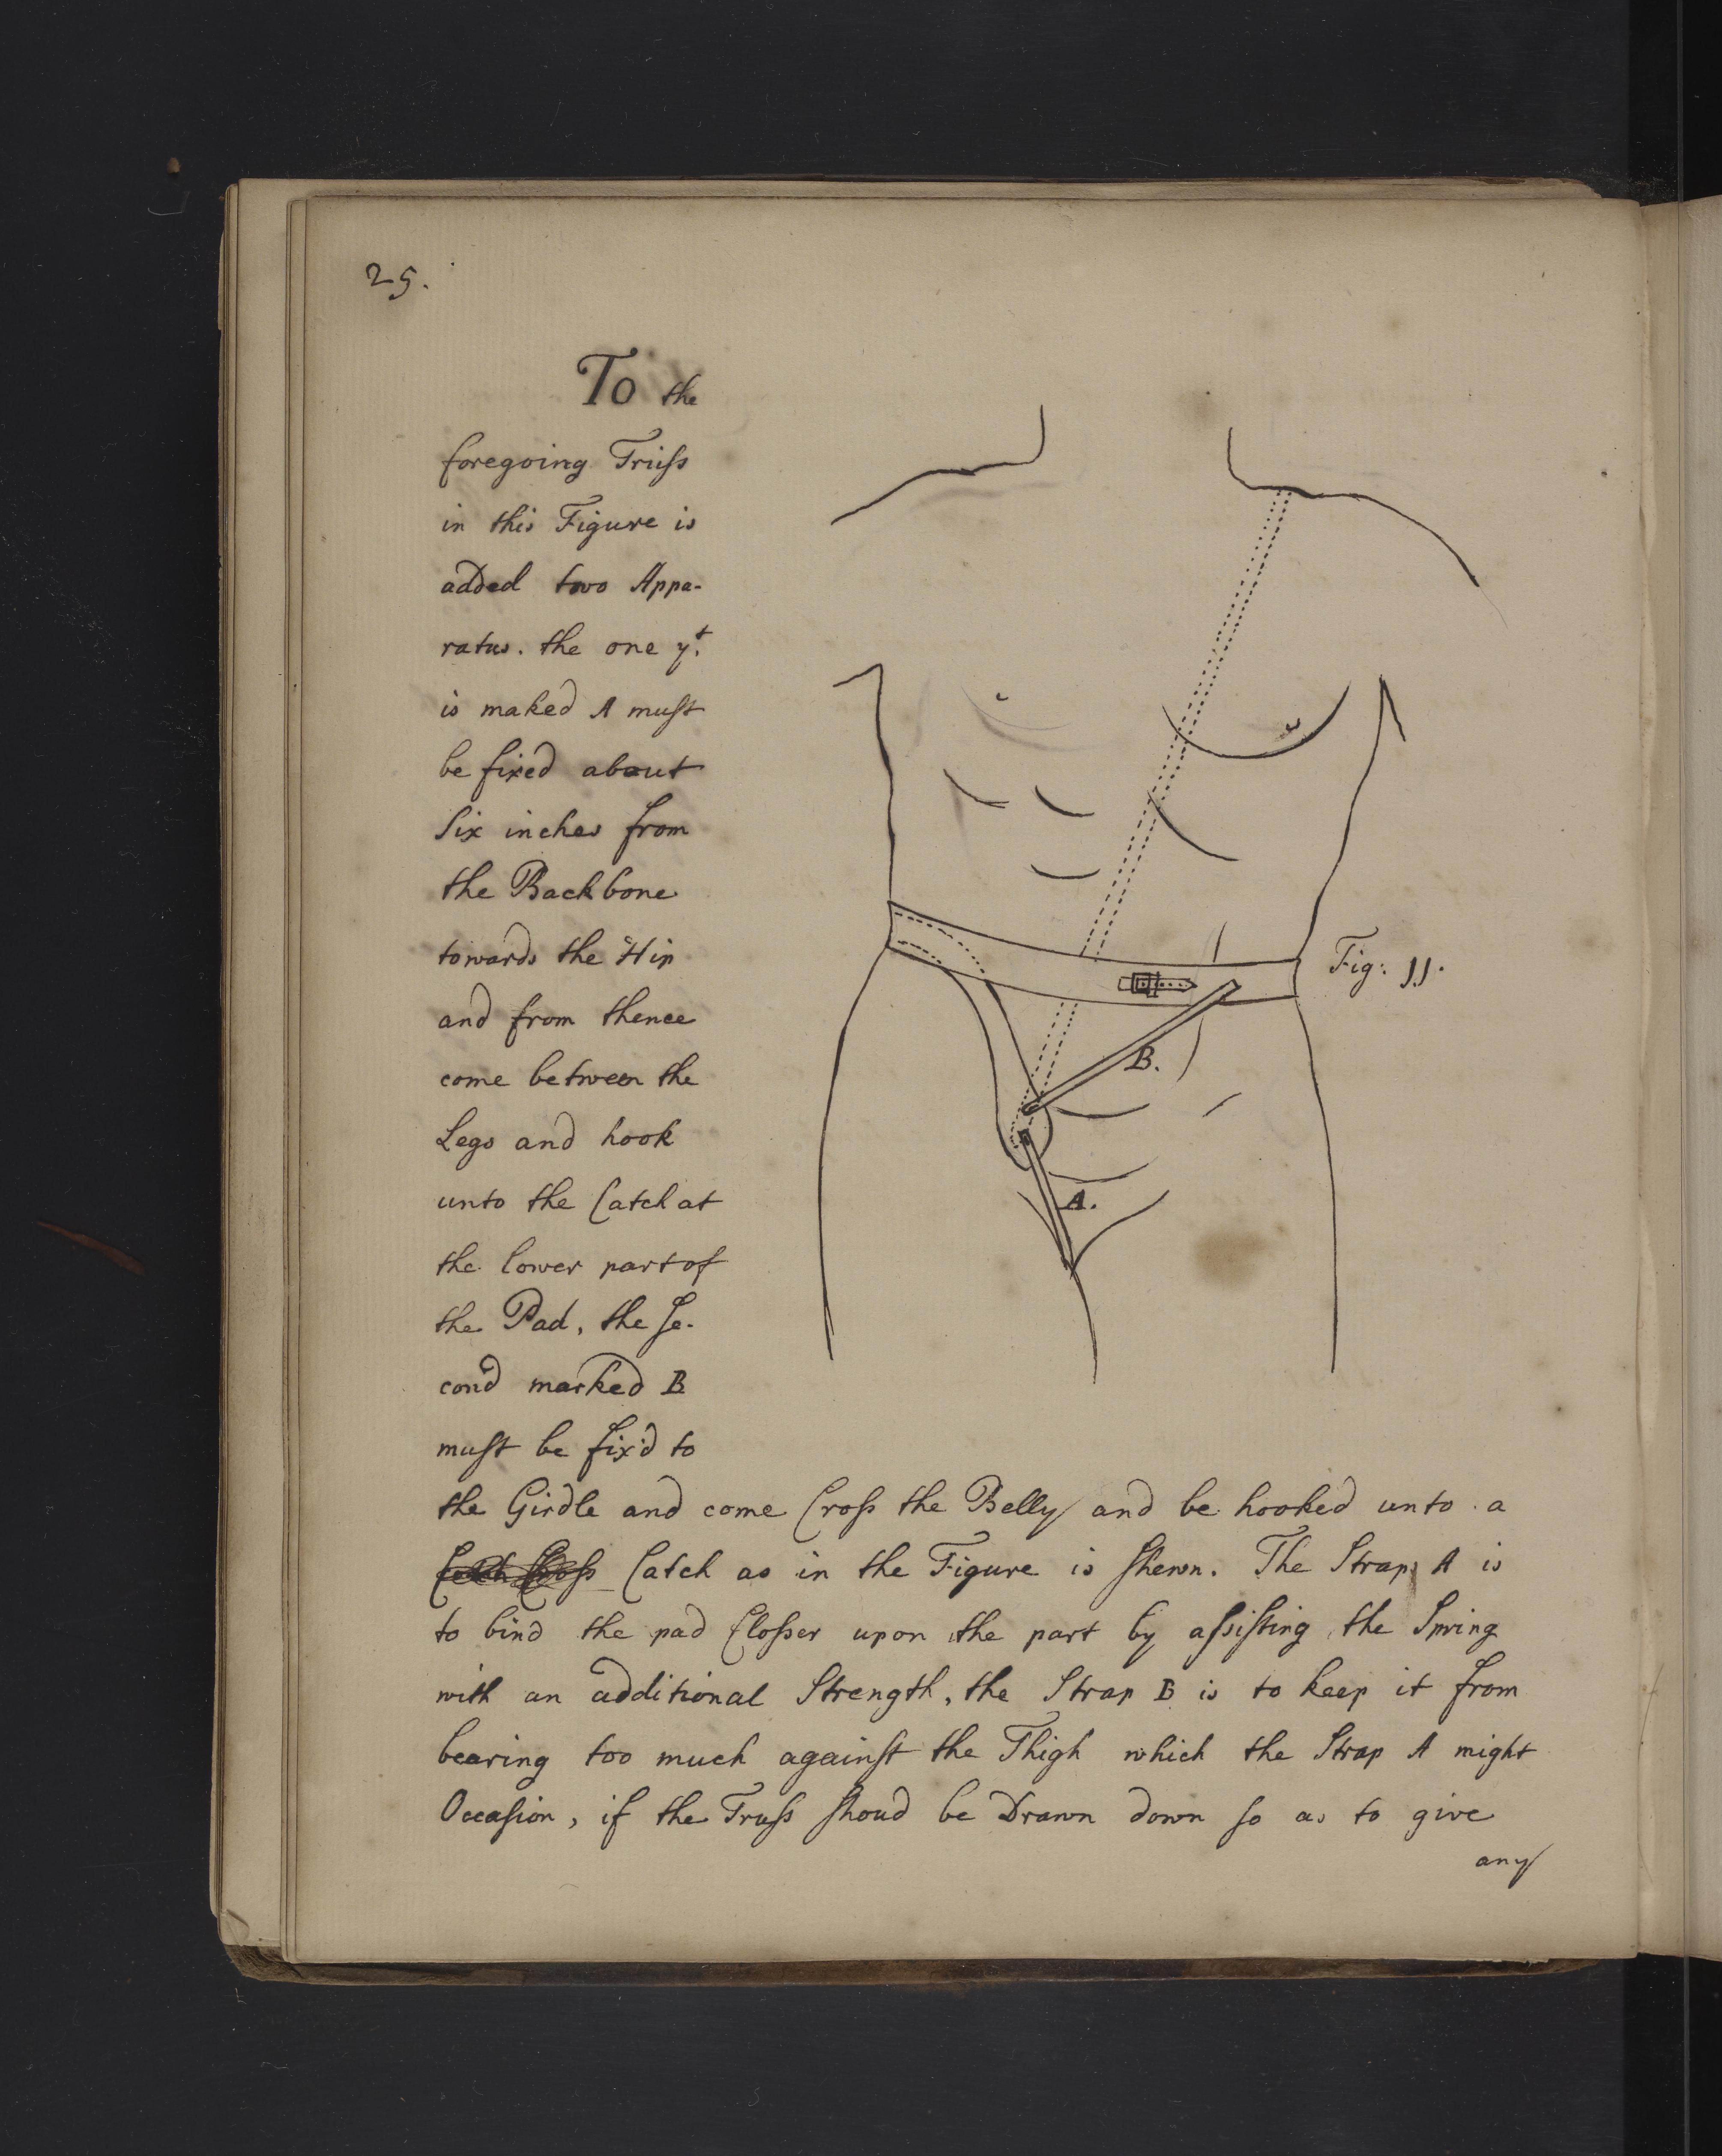 25.
To the
foregoing Truſs
in this Figure is
added two Appa-
ratus. the one yt.
is maked A muſt
be fixed about
Six inches from
the Backbone
towards the Hip
and from thence
come between the
Legs and hook
unto the Catch at
the lower part of
the Pad, the ſe-
cond marked B
muſt be fix'd to
the Girdle and come Croſs the Belly and be hooked unto a
Catch as in the Figure is ſhewn. The Strap A is
to bind the pad Cloſser upon the part by aſsiſting the Spring
with an additional Strength, the Strap B is to keep it from
bearing too much againſt the Thigh which the Strap A might
Occaſion, if the Truſs ſhoud be Drawn down ſo as to give
any
Fig: 11.
B.
A.